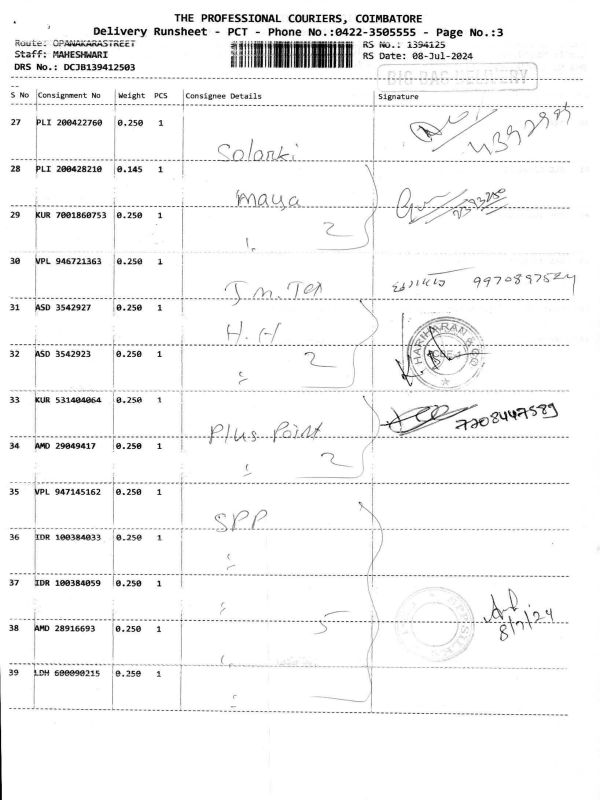 THE PROFESSIONAL COURIERS, COIMBATORE
Delivery Runsheet - PCT - Phone No.:0422-3505555 - Page No.:3
Route: OPANAKARASTREET RS No.: 1394125
Staff: MAHESHWARI RS Date: 08-Jul-2024
DRS No.: DCJB139412503
BIG BAG DELIVERY
S No Consignment No Weight PCS Consignee Details Signature
27 PLI 200422760 0.250 1 Solanki
28 PLI 200428210 0.145 1 Maya
29 KUR 7001860753 0.250 1 2
30 VPL 946721363 0.250 1 J.M. Tex 9970897524
31 ASD 3542927 0.250 1 H.H HARIHARAN & CO
32 ASD 3542923 0.250 1 2 CBE-1
33 KUR 531404064 0.250 1 Plus Point 7708447589
34 AMD 29049417 0.250 1 2
35 VPL 947145162 0.250 1 SPP
36 IDR 100384033 0.250 1
37 IDR 100384059 0.250 1
38 AMD 28916693 0.250 1 5 8/7/24
39 LDH 600090215 0.250 1